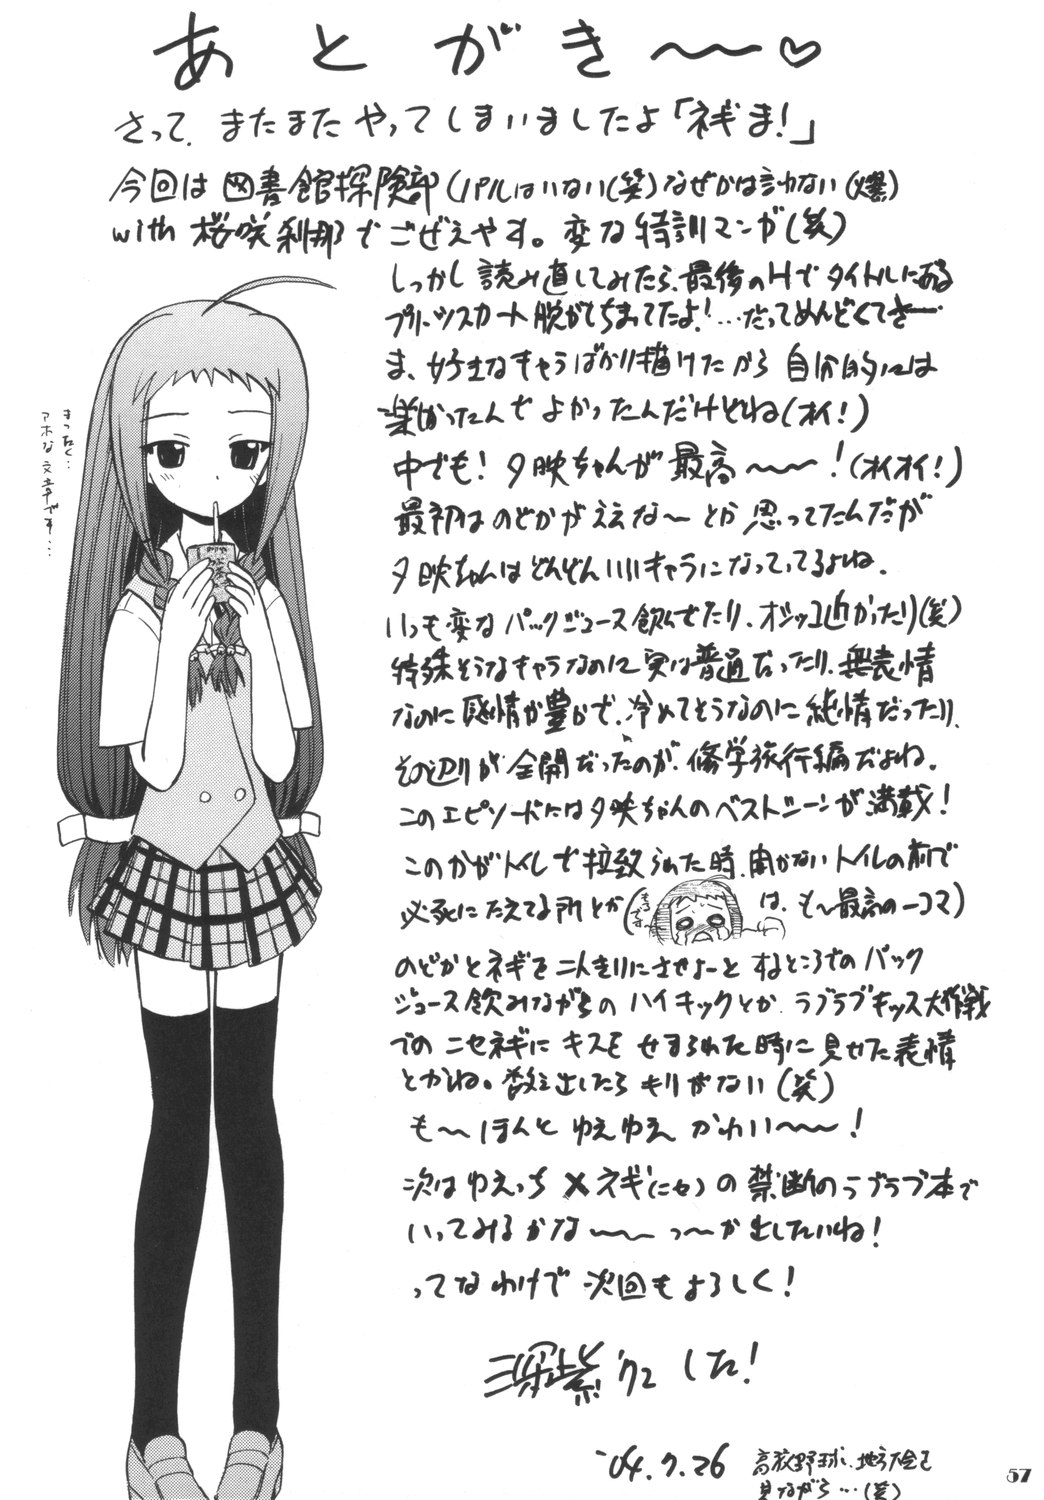 あとがき～～♡
さって、またまたやってしまいましたよ「ネギま!」
今回は図書館探険部(パルはいない(笑)なぜかは言わない(爆)
with 桜咲刹那でごぜえやす。変な特訓マンガ(笑)
しっかし読み直してみたら、最後のHでタイトルにある
プリーツスカート脱がしちまってたよ!…だってめんどくてさー
ま、好きなキャラばかり描けたから自分的には
楽しかったんでよかったんだけどね(オイ!)
中でも!夕映ちゃんが最高～～～!(オイオイ!)
最初はのどかがええな～とか思ってたんだが
夕映ちゃんはどんどんいいキャラになっていってるよね。
いつも変なパックジュース飲んでたり、オジッコ近かったり(笑)
特殊そうなキャラなのに実は普通だったり、無表情
なのに感情が豊かで、冷めてそうなのに純情だったり、
その辺りが全開だったのが、修学旅行編だよね。
このエピソードには夕映ちゃんのベストシーンが満載!
このかがトイレで拉致られた時、開かないトイレの前で
必死にたえてる所とか(もるです…は、も～最高の一コマ)
のどかとネギを二人きりにさせよーとするところでのパック
ジュース飲みながらのハイキックとか、ラブラブキッス大作戦
でのニセネギにキスをせまられた時に見せた表情
とかね。数え出したらキリがない(笑)
も～ほんとゆえゆえかわい～～～!
次はゆえっち×ネギ(ニセ)の禁断のラブラブ本で
いってみるかな～～～っ～か出したいね!
ってなわけで次回もよろしく!
深紫でした!
'04.7.26
高校野球、地方大会を
見ながら…(笑)
まったく…
アホな文章です…
57